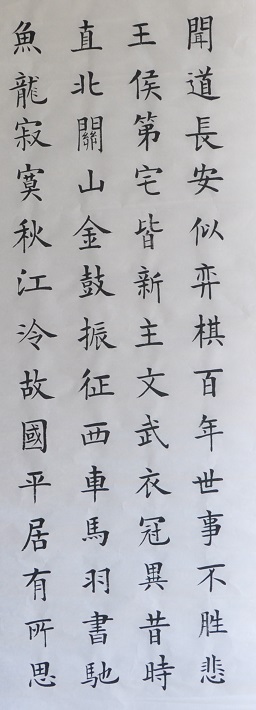 聞道長安似弈棋百年世事不胜悲
王侯第宅皆新主文武衣冠異昔時
直北關山金鼓振征西車馬羽書馳
魚龍寂寞秋江冷故國平居有所思